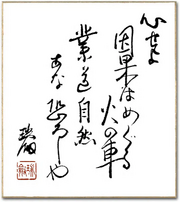 心せよ
因果はめぐる
火の車
業道自然
あな恐ろしや